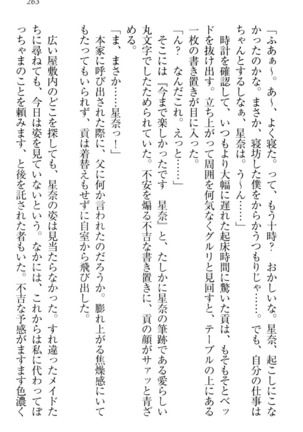 263
「ふぁぁ～。あ～、よく寝た。って、もう十時？　おかしいな。星奈、起こしにこな
かったのかな。まさか、寝坊した僕をからかうつもりじゃ……。でも、自分の仕事は
ちゃんとするしなぁ、星奈は。う～ん……」
時計を確認して、いつもより大幅に遅れた起床時間に驚いた貢は、もそもそとベッ
ドを抜け出す。立ち上がって周囲を何気なくグルリと見回すと、テーブルの上にある
一枚の書き置きが目に入った。
「ん？　なんだこれ。えっと……」
そこには『今まで楽しかったです　星奈』と、たしかに星奈の筆跡である愛らしい
丸文字でしたためられていた。不安を煽る不吉な書き置きに、貢の顔がサァッと青ざ
める。
「ま、まさか……星奈っ！」
本家に呼び出された折に、父に何か言われたのだろうか。膨れ上がる焦燥感にいて
もたってもいられず、貢は着替えもせずに自室から飛び出した。
広い屋敷内のどこを探しても、星奈の姿は見当たらなかった。すれ違ったメイドた
ちに尋ねても、今日は姿を見ていないという。なかには、これからは私に代わってぼ
っちゃまのことを頼みます、と後を託された者もいた。不吉な予感がますます色濃く